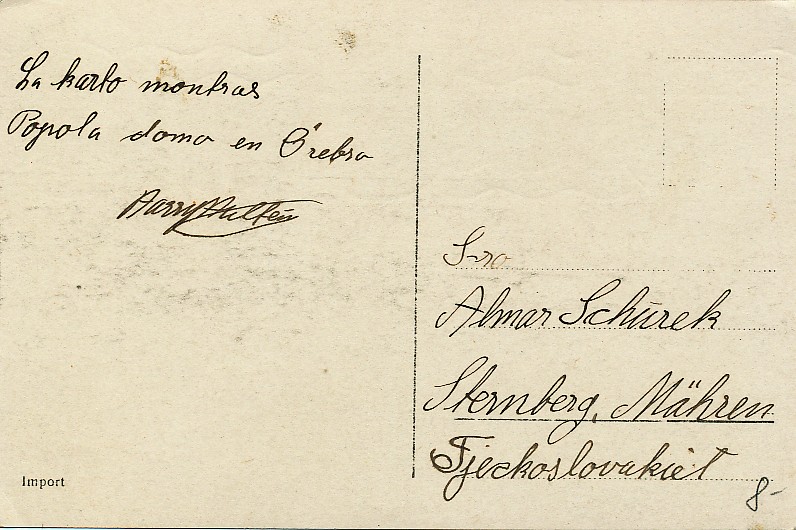 La karto montras
Popola domo en Örebro
Harry Hultén
S-ro
Almar Schürek
Sternberg, Mähren
Tjeckoslovakiet
Import
8-